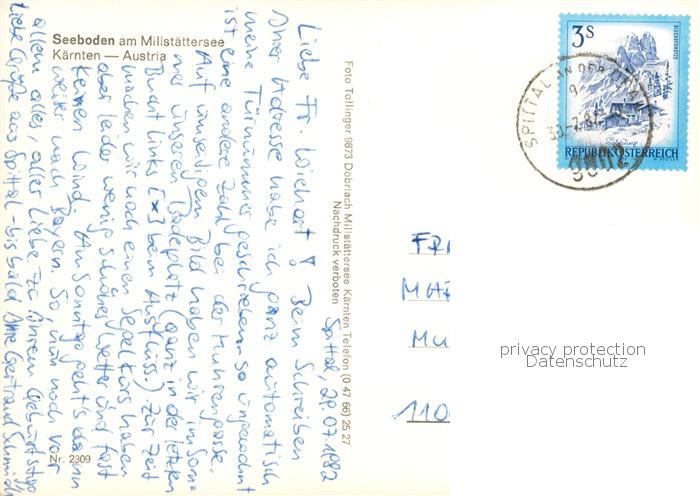 Seeboden am Millstättersee
Kärnten — Austria
Spittal, 29.07.1982
Liebe Fr. Wichart! Beim Schreiben
Ihrer Adresse habe ich ganz automatisch
meine Türnummer geschrieben - so ungewohnt
ist eine andere Zahl bei der Muhrengasse.
Auf umseitigem Bild haben wir im Som-
mer unseren Badeplatz (ganz in der letzten
Bucht links [x] beim Ausfluss.) Zur Zeit
machen wir noch einen Segelkurs, haben
aber leider wenig schönes Wetter und fast
keinen Wind. Am Sonntag geht's dann
weiter nach Bayern. So, nun noch vor
allem alles, alles Liebe zu Ihrem Geburtstag
Liebe Grüße aus Spittal - bis bald Ihre Gertraud Schmid
Nr. 2309
Foto Tollinger 9873 Döbriach Millstättersee Kärnten Telefon (0 47 66) 25 27
Nachdruck verboten
3S
BISCHOFSMÜTZE
REPUBLIK ÖSTERREICH
SPITTAL AN DER DRAU
FR
MAR
MU
110
privacy protection
Datenschutz